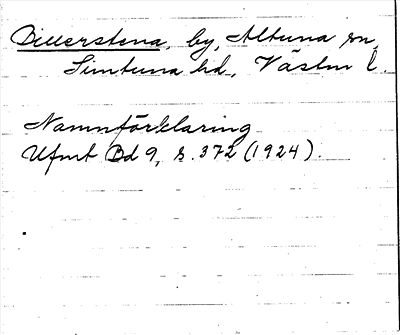 Dillerstena, by, Altuna sn,
Simtuna hd, Västm l.
Namnförklaring
Ufmt Bd 9, s. 372 (1924).